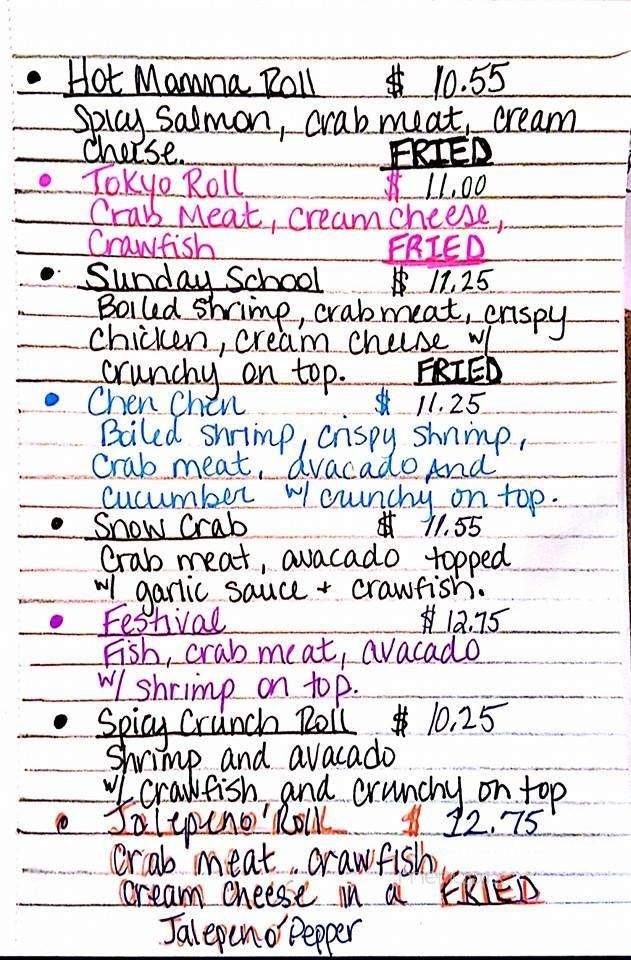 • Hot Mamma Roll $ 10.55
Spicy Salmon, crab meat, cream
cheese. FRIED
• Tokyo Roll $ 11.00
Crab Meat, cream cheese,
Crawfish FRIED
• Sunday School $ 11.25
Boiled shrimp, crab meat, crispy
chicken, cream cheese w/
crunchy on top. FRIED
• Chen Chen $ 11.25
Boiled shrimp, crispy shrimp,
Crab meat, avacado And
cucumber w/ crunchy on top.
• Snow Crab $ 11.55
Crab meat, avacado topped
w/ garlic sauce + crawfish.
• Festival $ 12.75
Fish, crab meat, avacado
w/ shrimp on top.
• Spicy Crunch Roll $ 10.25
Shrimp and avacado
w/ Crawfish and crunchy on top
• Jalepeno' Roll $ 12.75
Crab meat, crawfish,
Cream Cheese in a FRIED
Jalepeno' Pepper